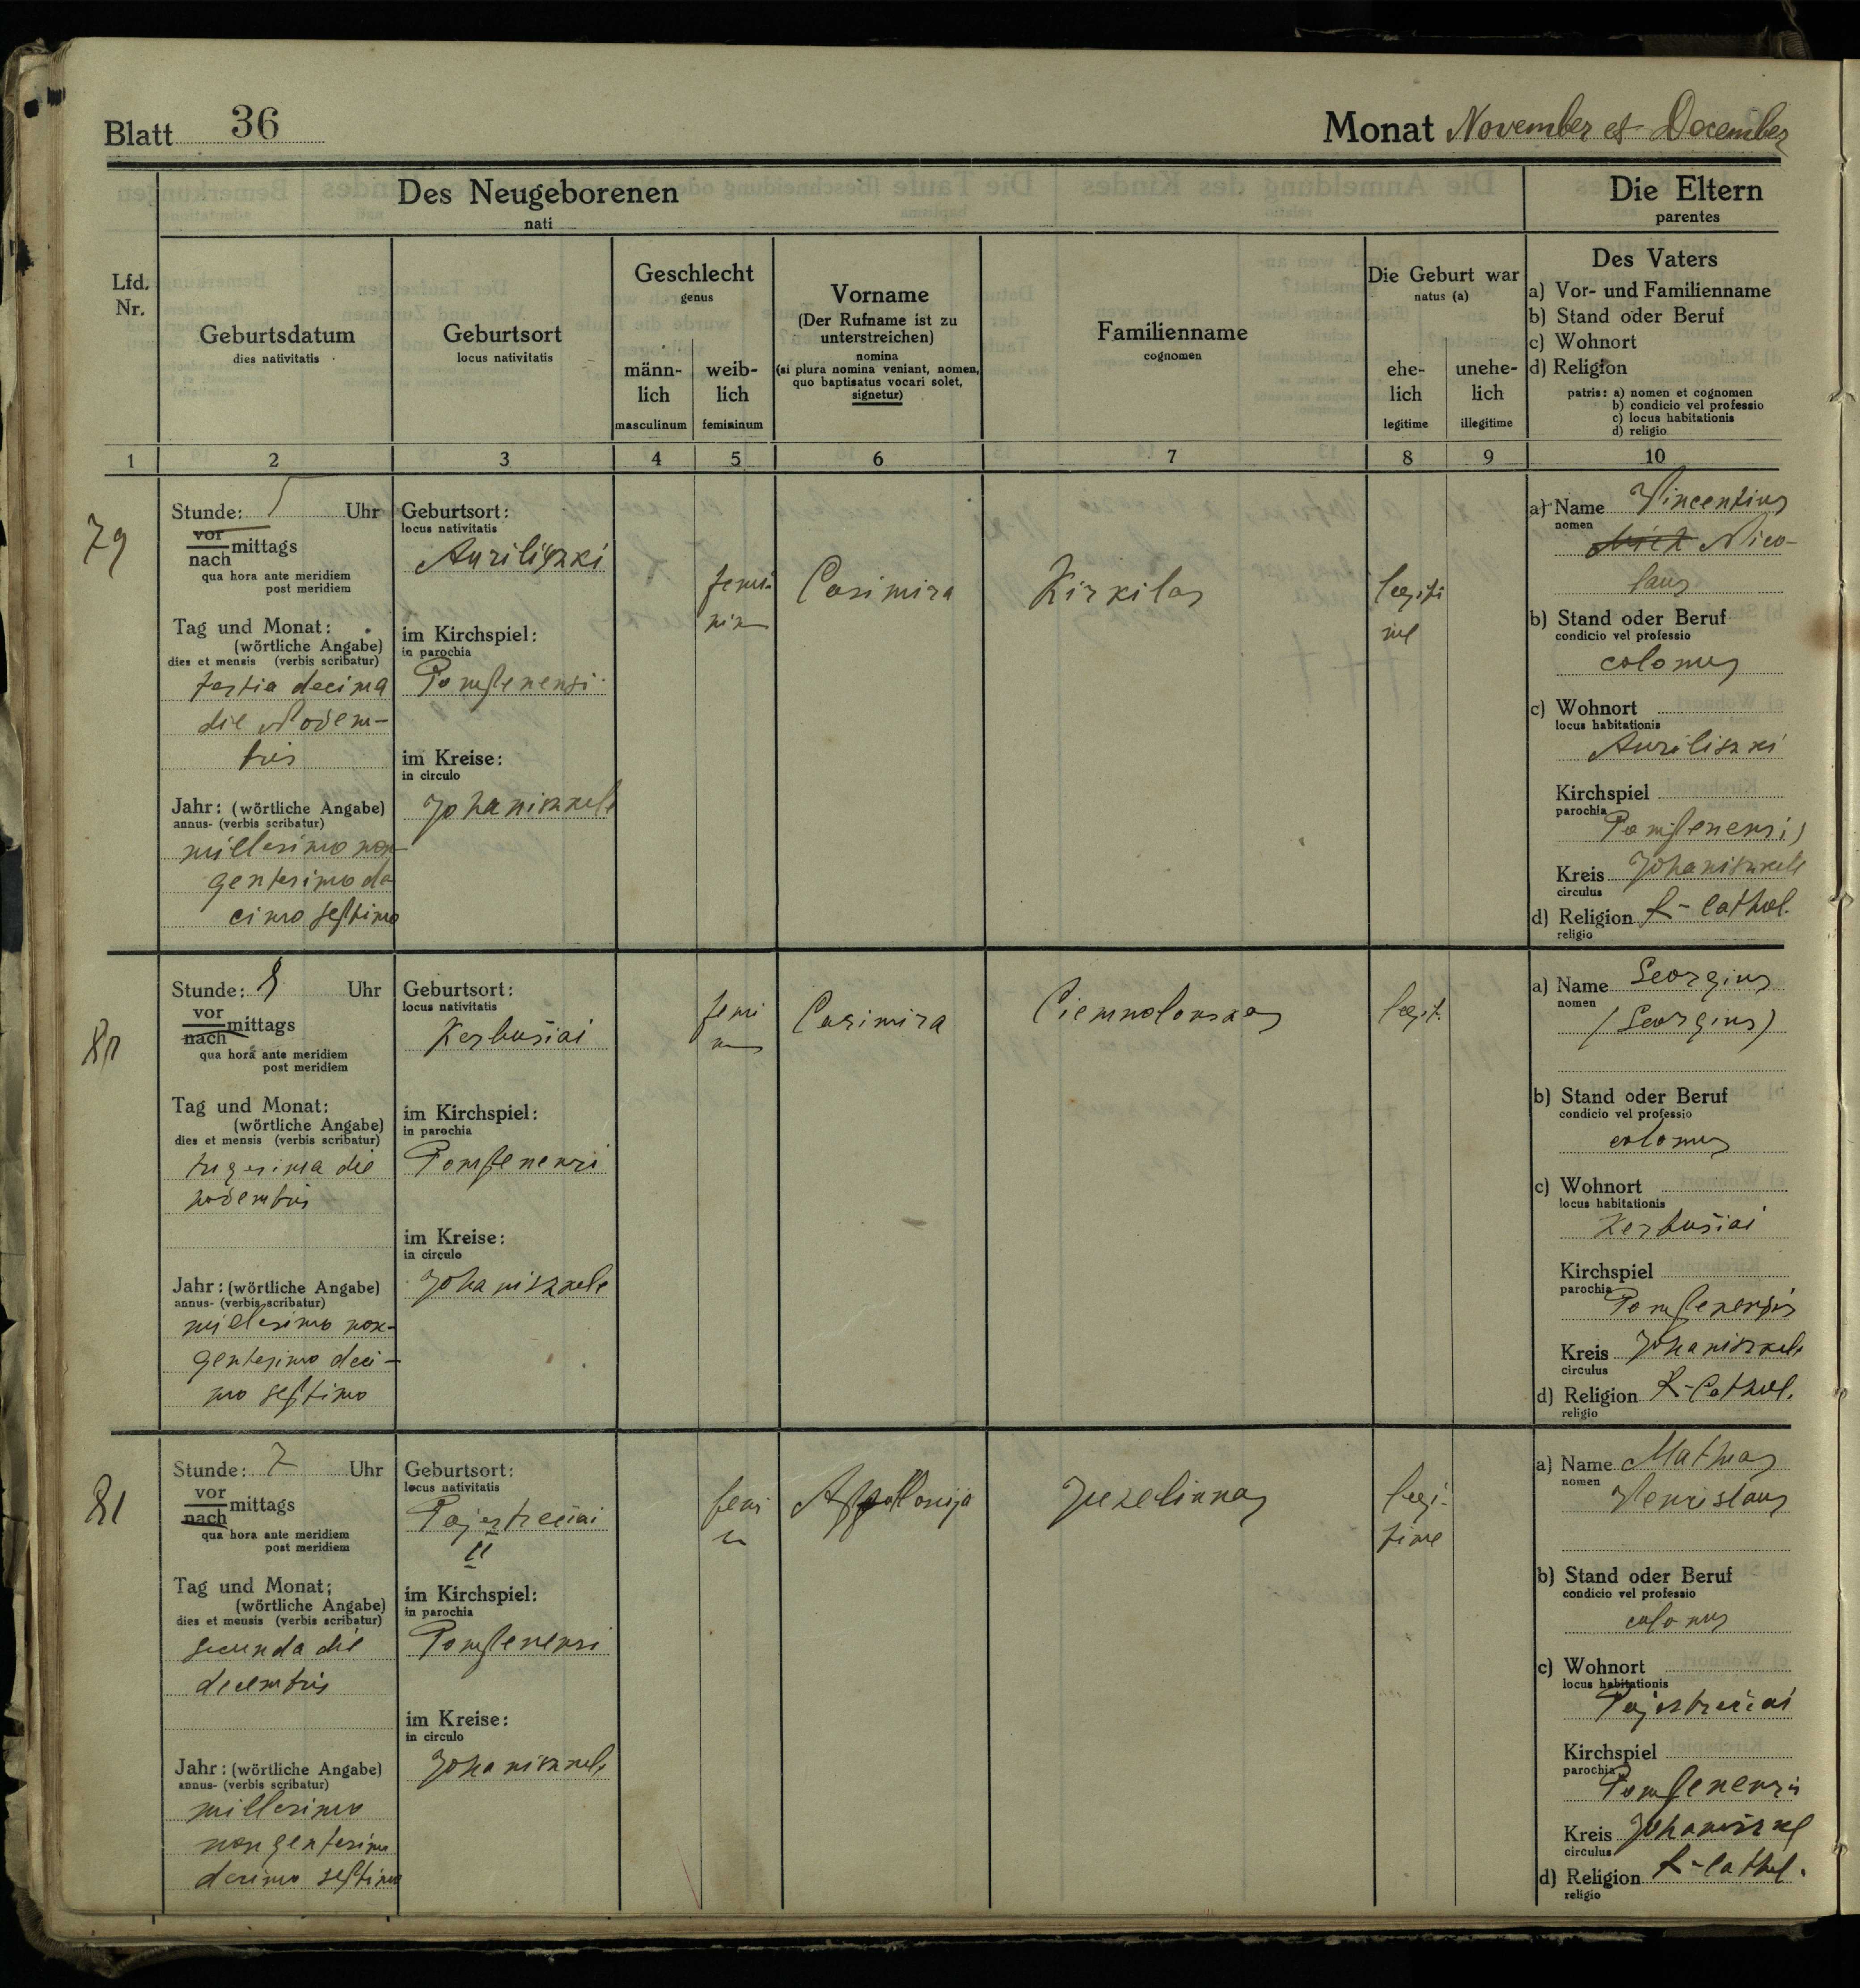 Blatt 36
Monat November et December
Des Neugeborenen
nati
Die Eltern
parentes
Lfd.
Nr.
Geburtsdatum
dies nativitatis
Geburtsort
locus nativitatis
Geschlecht
genus
männ-
lich
masculinum
weib-
lich
femininum
Vorname
(Der Rufname ist zu
unterstreichen)
nomina
(si plura nomina veniant, nomen,
quo baptisatus vocari solet,
signetur)
Familienname
cognomen
Die Geburt war
natus (a)
ehe-
lich
legitime
unehe-
lich
illegitime
Des Vaters
a) Vor- und Familienname
b) Stand oder Beruf
c) Wohnort
d) Religion
patris: a) nomen et cognomen
b) condicio vel professio
c) locus habitationis
d) religio
1 2 3 4 5 6 7 8 9 10
79
Stunde: 5 Uhr
vor
mittags
nach
qua hora ante meridiem
post meridiem
Tag und Monat:
(wörtliche Angabe)
dies et mensis (verbis scribatur)
tertia decima
die Novem-
bris
Jahr: (wörtliche Angabe)
annus- (verbis scribatur)
millesimo non-
gentesimo de
cimo septimo
Geburtsort:
locus nativitatis
Auriliszki
im Kirchspiel:
in parochia
Pompenensi
im Kreise:
in circulo
Johaniszkele
femi-
nin
Casimira
Kirkilas
legiti
me
a) Name Vincentius
nomen
Nico-
laus
b) Stand oder Beruf
condicio vel professio
colonus
c) Wohnort
locus habitationis
Auriliszki
Kirchspiel
parochia
Pompenensis
Kreis Johaniszkele
circulus
d) Religion R-Cathol.
religio
80
Stunde: 8 Uhr
vor
mittags
nach
qua hora ante meridiem
post meridiem
Tag und Monat:
(wörtliche Angabe)
dies et mensis (verbis scribatur)
trigesima die
novembris
Jahr: (wörtliche Angabe)
annus- (verbis scribatur)
millesimo non-
gentesimo deci-
mo septimo
Geburtsort:
locus nativitatis
Kerbušiai
im Kirchspiel:
in parochia
Pompenensi
im Kreise:
in circulo
Johaniszkele
femi
Casimira
Ciemnolonskas
legit.
a) Name Georgius
nomen
(Georgius)
b) Stand oder Beruf
condicio vel professio
colonus
c) Wohnort
locus habitationis
Kerbušiai
Kirchspiel
parochia
Pompenensis
Kreis Johaniszkele
circulus
d) Religion R-Cathol.
religio
81
Stunde: 7 Uhr
vor
mittags
nach
qua hora ante meridiem
post meridiem
Tag und Monat:
(wörtliche Angabe)
dies et mensis (verbis scribatur)
secunda die
decembris
Jahr: (wörtliche Angabe)
annus- (verbis scribatur)
millesimo
nongentesimo
decimo septimo
Geburtsort:
locus nativitatis
Pajestrečiai
II
im Kirchspiel:
in parochia
Pompenensi
im Kreise:
in circulo
Johaniszkele
femi
n
Appollonija
Juzelinnas
legi-
time
a) Name Mathias
nomen
b) Stand oder Beruf
condicio vel professio
colonus
c) Wohnort
locus habitationis
Pajestrečiai
Kirchspiel
parochia
Pompenensis
Kreis Johaniszkel
circulus
d) Religion R-Cathol.
religio